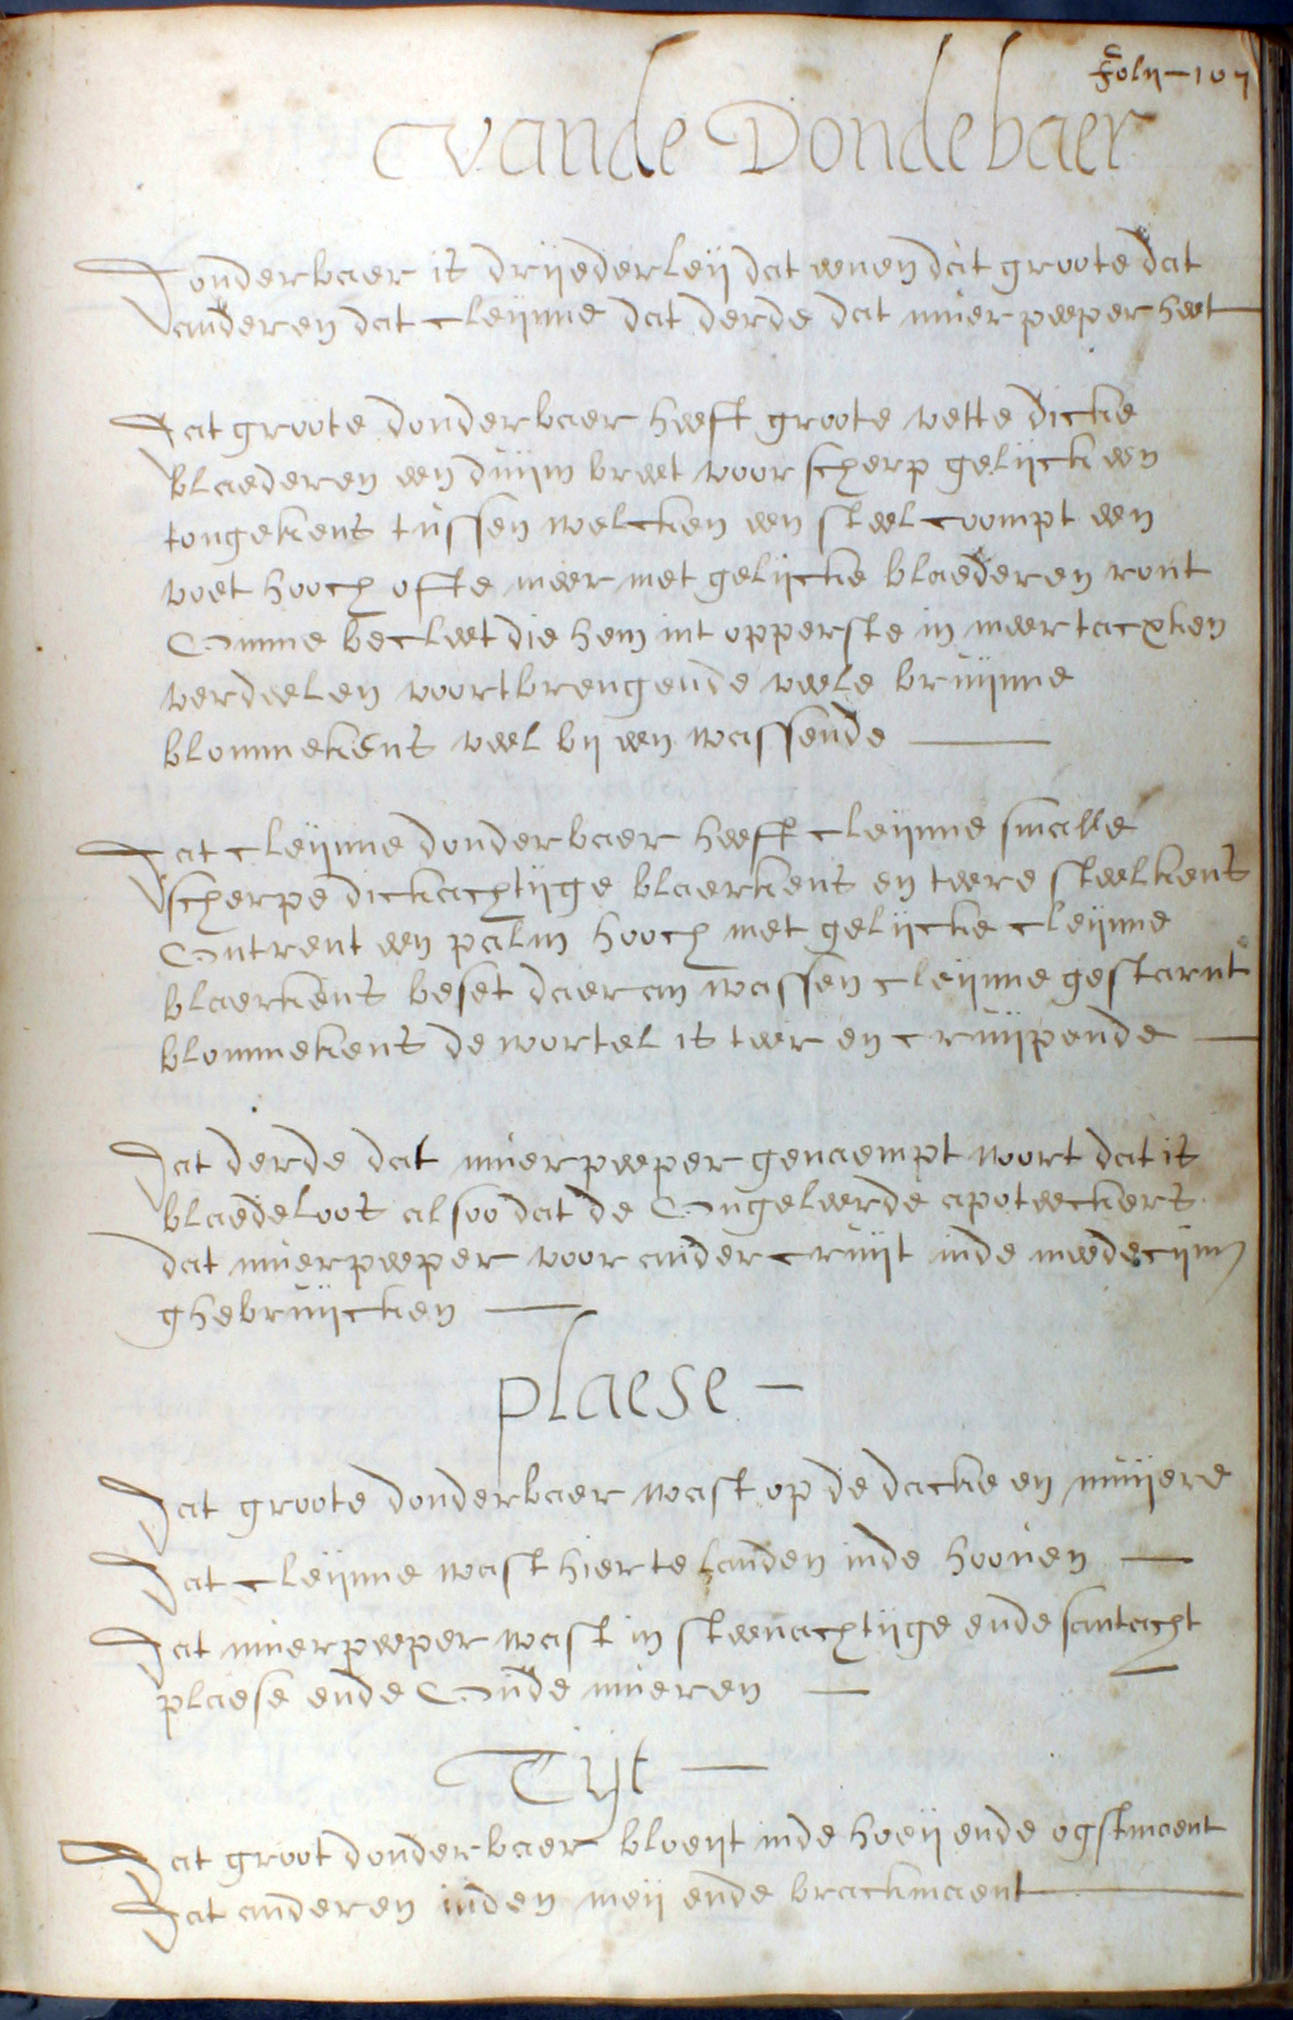 Foly-107
vande Dondebaer
Donderbaer is drijederleij dat eenen dat groote dat
anderen dat cleijnne dat derde dat muerpeeper heet
Dat groote donderbaer heeft groote vette dicke
blaederen een duijm breet voor scherp gelijck een
tongekens tussen welcken een steel coompt een
voet hooch ofte meer met gelijcke blaederen ront
omme becleet die hem int opperste in meer tacxken
verdeelen voortbrengende veele bruijnne
blommekens veel bij een wassende
Dat cleijnne donderbaer heeft cleijnne smalle
scherpe dickachtijge blaerkens en teere steelkens
ontrent een palm hooch met gelijcke cleijnne
blaerkens beset daer an wassen cleijnne gestarnt
blommekens de wortel is teer en cruijpende
Dat derde dat muerpeeper genaempt woort dat is
blaedeloos alsoo dat de ongeleerde apoteeckers
dat muerpeeper voor ander cruijt inde medecijnn
ghebruijcken
plaese
Dat groote donderbaer wast op de dacke en muijere
Dat cleijnne wast hier te landen inde hooven
Dat muerpeeper wast in steenachtijge ende santacht
plaese ende oude mueren
Tijt
Dat groot donderbaer bloeijt inde hoeij ende ogstmaent
Dat anderen inden meij ende brackmaent